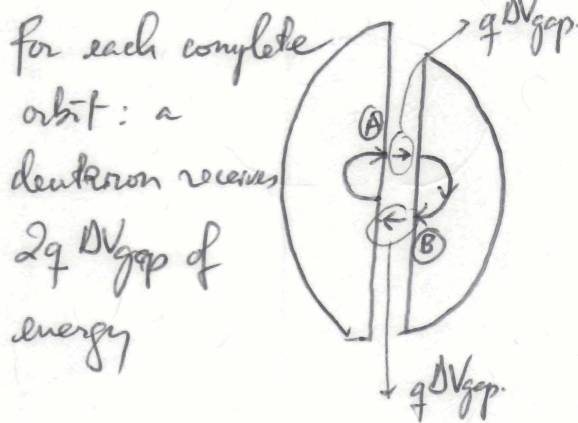 for each complete
orbit : a
deuteron receives
2q DVgap of
energy
q DVgap.
A
B
q DVgap.